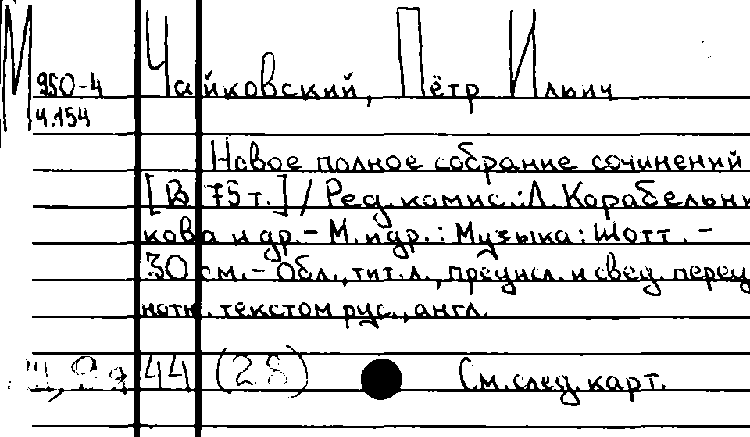 М 950-4 Чайковский, Пётр Ильич
ч.154
Новое полное собрание сочинений
[В 75 т.] / Ред. комис.: Л. Корабельни
кова и др. - М. и др.: Музыка: Шотт. -
30 см. - Обл., тит. л., предисл. и свед. перед
нотн. текстом рус., англ.
44 (28) См. след. карт.